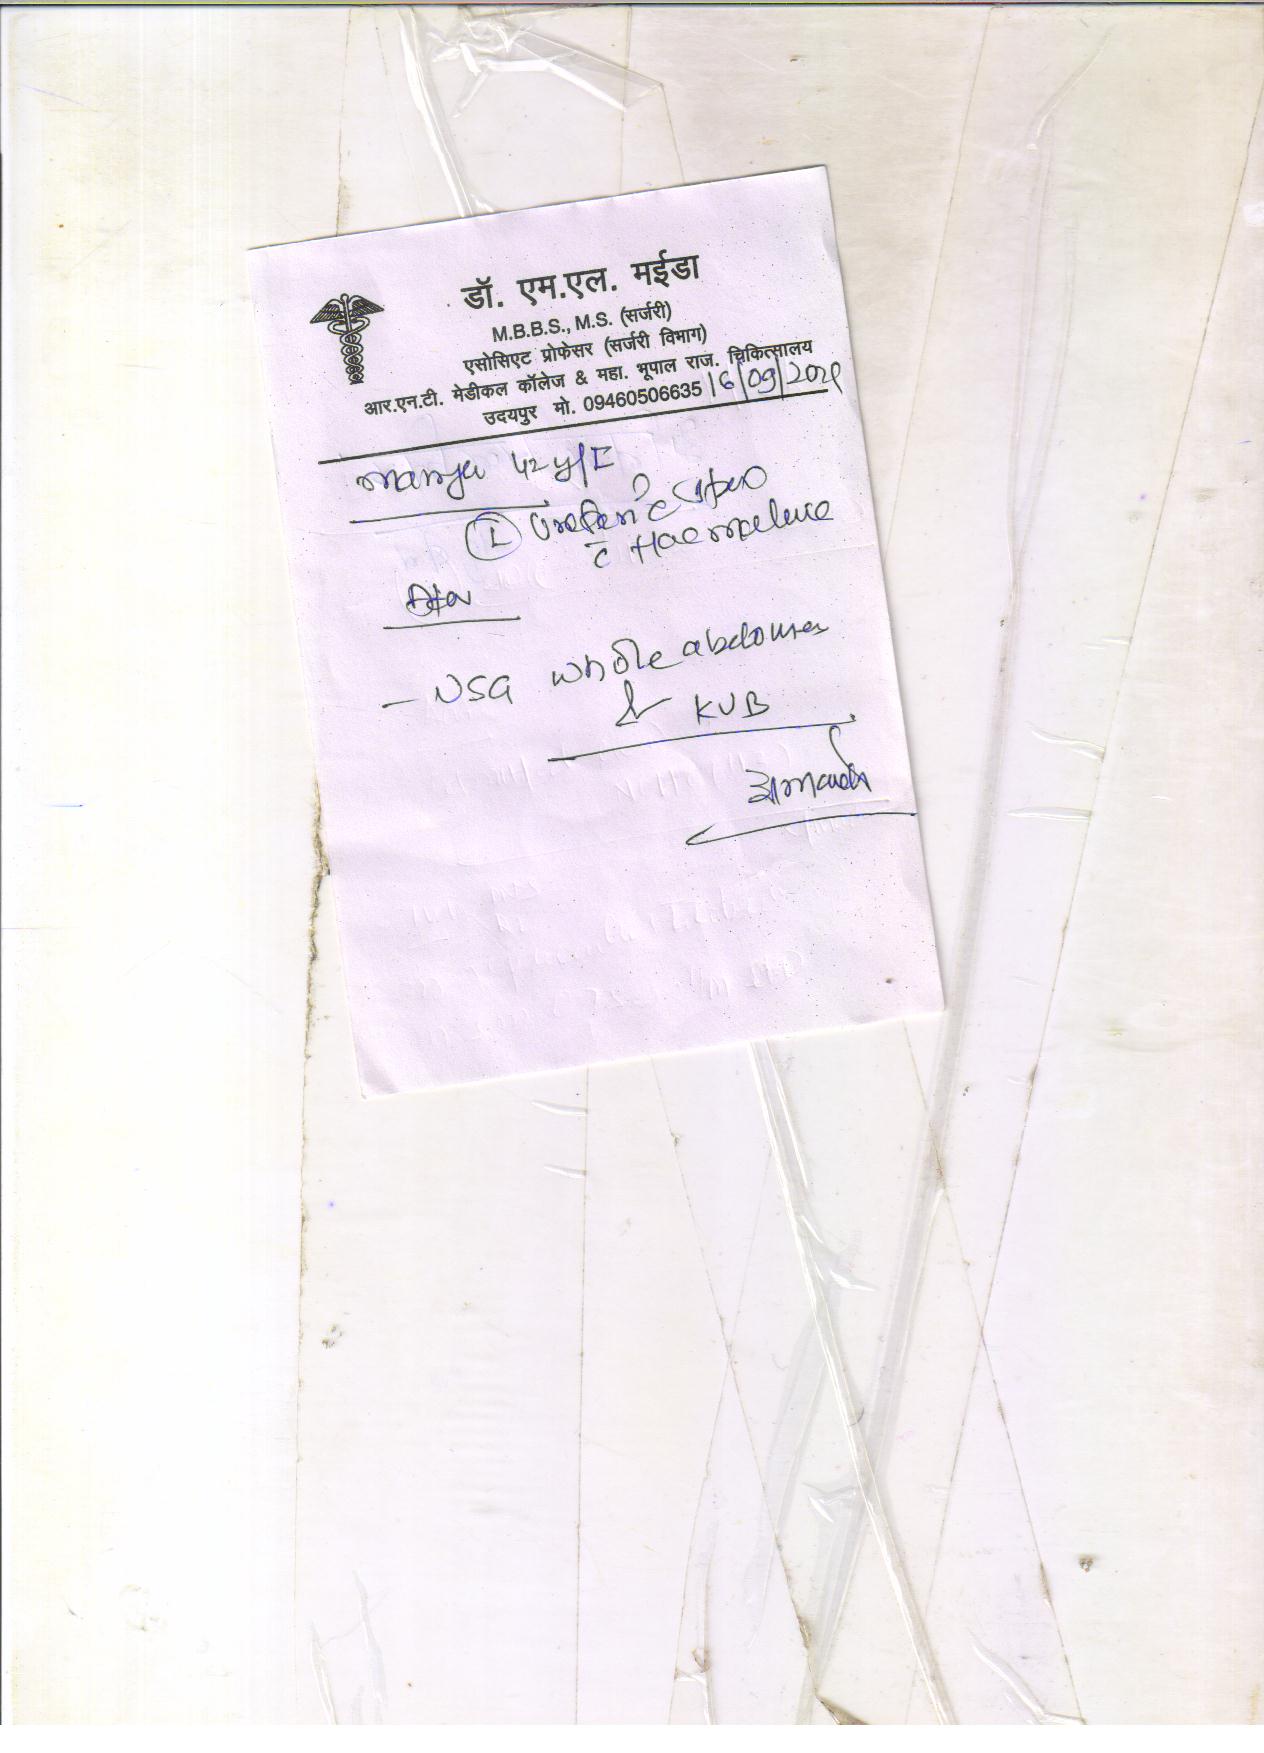 डॉ. एम.एल. मईडा
M.B.B.S., M.S. (सर्जरी)
एसोसिएट प्रोफेसर (सर्जरी विभाग)
आर.एन.टी. मेडीकल कॉलेज & महा. भूपाल राज. चिकित्सालय
उदयपुर मो. 09460506635 16/09/202
42 y/F
L
c Haematuria
Adv
- USG whole abdomen
& KUB